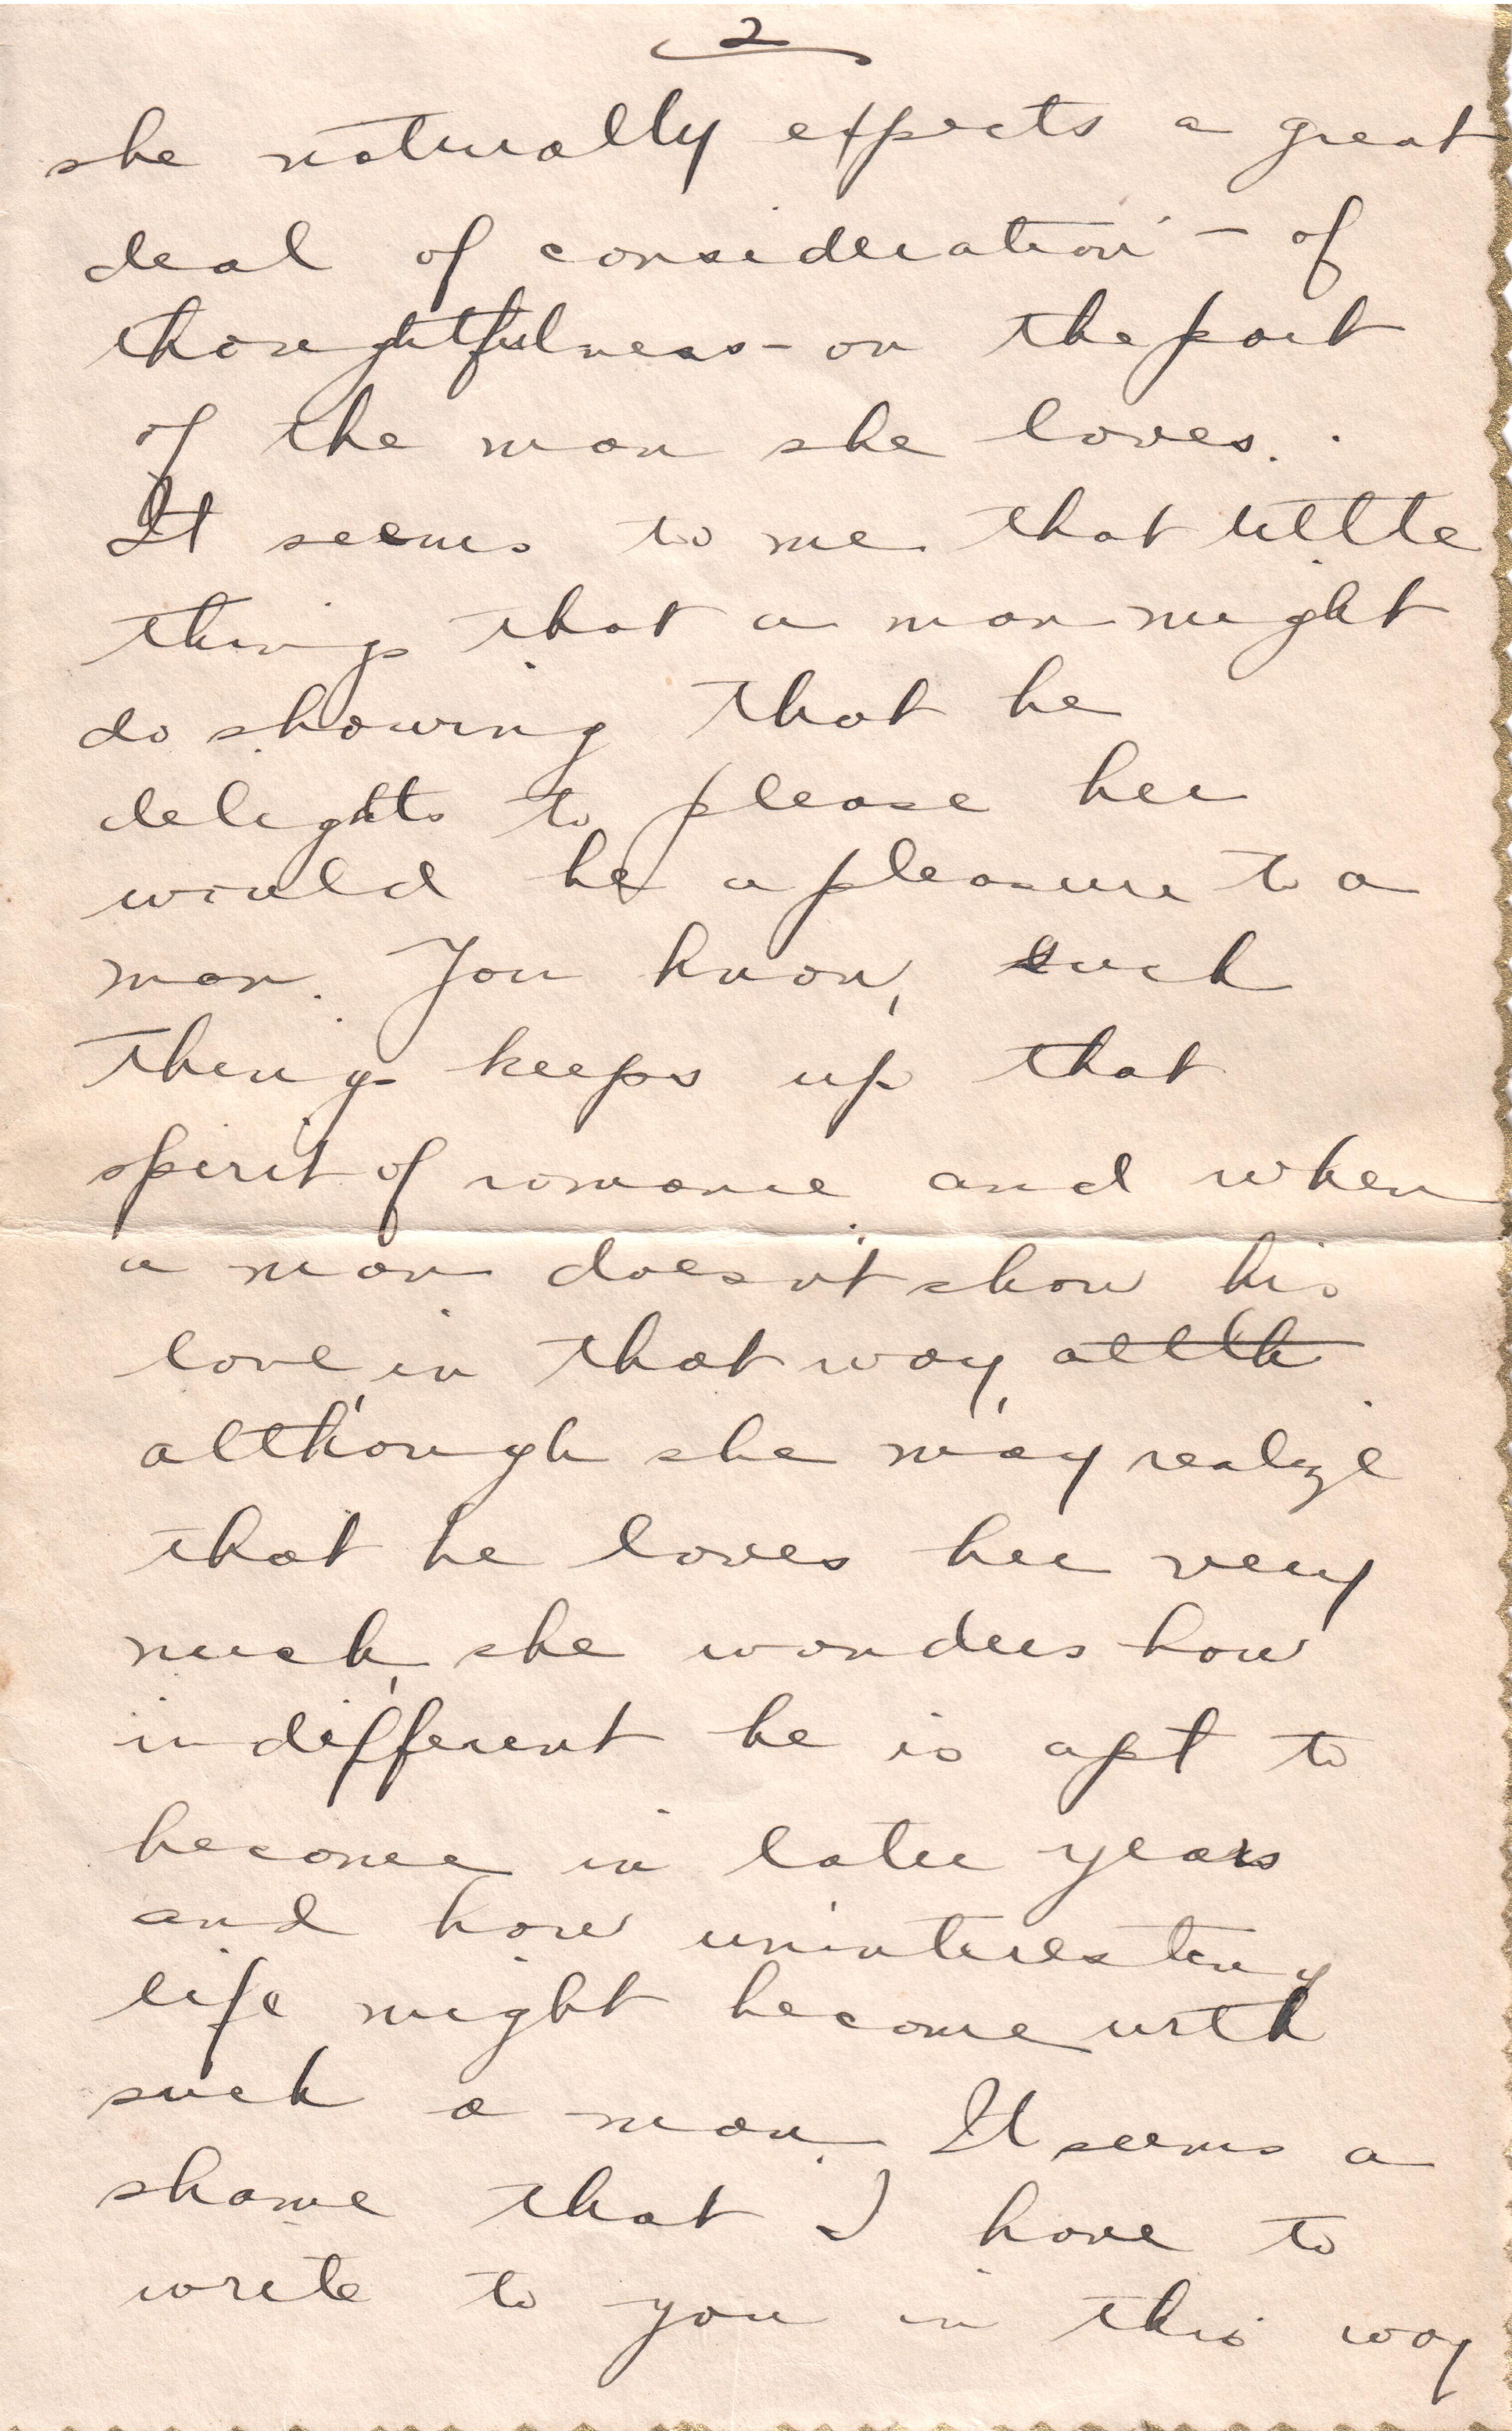 2
she naturally expects a great
deal of consideration - of
thoughtfulness - on the part
of the man she loves.
It seems to me that little
things that a man might
do showing that he
delights to please her
would be a pleasure to a
man. You know, such
things keeps up that
spirit of romance and when
a man doesn't show his
love, in that way, altth
although she may realize
that he loves her very
much, she wonders how
indifferent he is apt to
become in later years
and how uninteresting
life might become with
such a man. It seems a
shame that I have to
write to you in this way